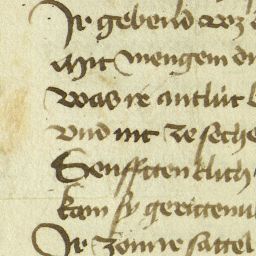 Ir gebend voz
Mit mengem
Was ir antlüt
Vnd mit ze sech
Senfftenklich
kam sy geritten
Ir zom ir sattel